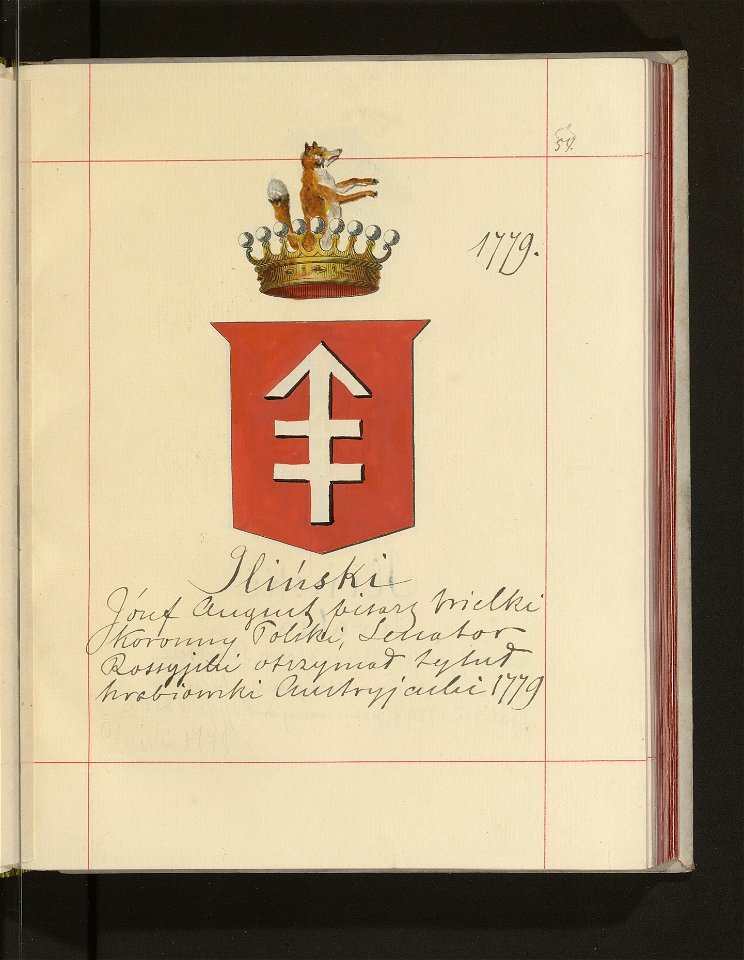 54.
1779.
Iliński
Józef August pisarz Wielki
Koronny Polski, Senator
Rossyjski otrzymał tytuł
hrabiowski Austryjacki 1779